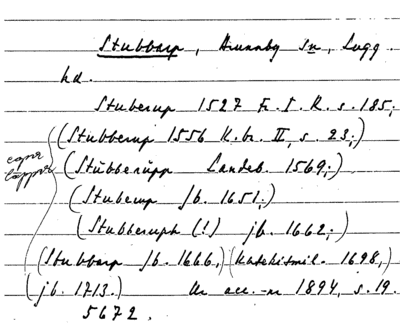 Stubbarp, Hunnby sn, Lugg.
hd.
Stuberup 1527 F. I. R. s. 185;
(Stubberup 1556 K.br. II, s. 23;)
(Stübberüpp Landeb. 1569;)
(Stuberup Jb. 1651;)
(Stubberuph (!) jb. 1662;)
(Stubbarp Jb. 1666,) (Katekismil. 1698,)
(jb. 1713.) Ur acc.-nr 1894, s. 19.
5672.